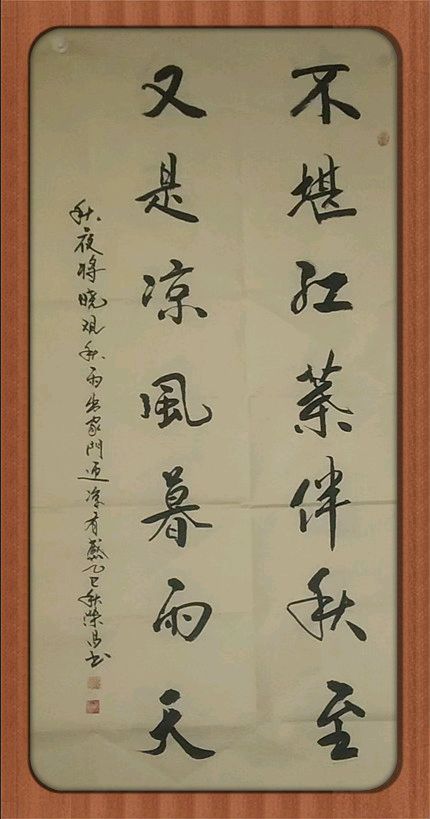 不堪红葉伴秋至
又是凉風暮雨天
秋夜将晓观秋雨出家門迎凉有感乙巳秋荣昌书